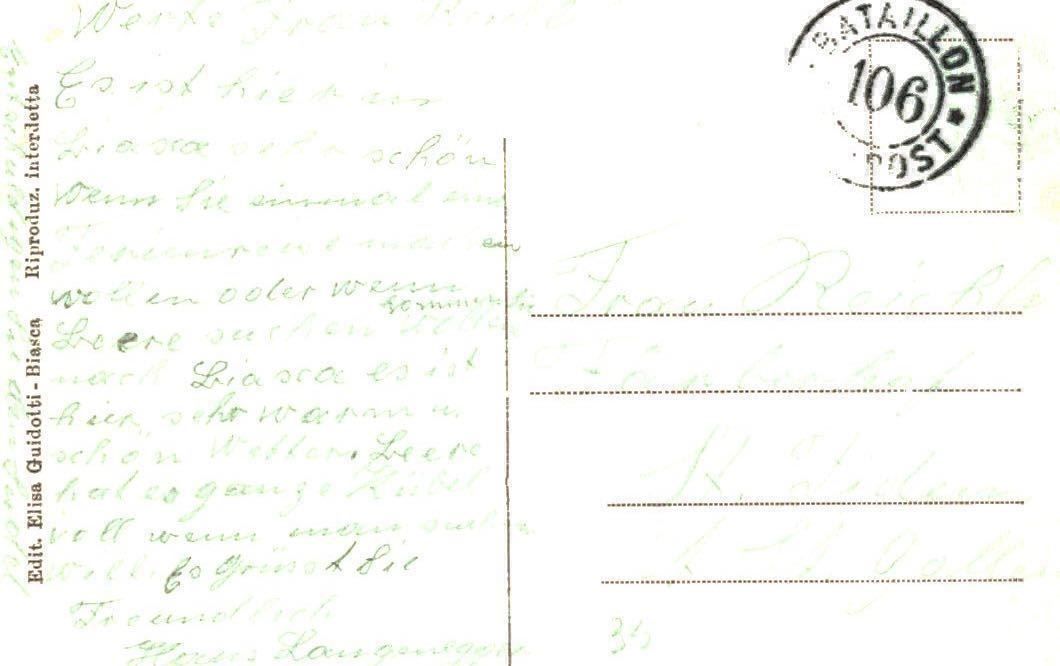 Werte Frau Reichle
Es ist hier in
Biasca sehr schön
wenn Sie einmal eine
Ferienreise machen
wollen oder wenn
kommen Sie
Beere suchen wollen
nach Biasca es ist
hier sehr warm u
schön Wetter. Beere
hat es ganze Kübel
voll wenn man suchen
will. Es Grüsst Sie
Freundlich
Hans Langenegger
Edit. Elisa Guidotti - Biasca Riproduz. interdetta
BATAILLON
106
POST
Frau Reichle
St. Fiden
St. Gallen
35